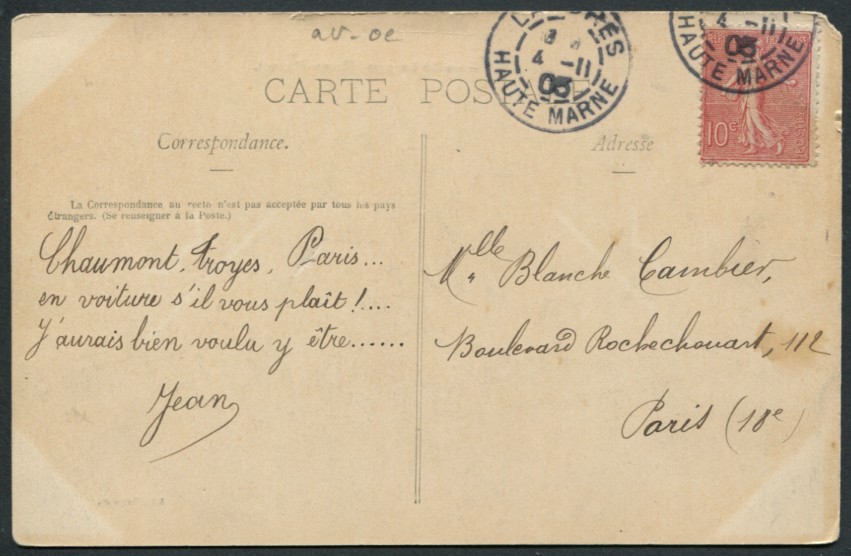 av-oe
CARTE POSTALE
HAUTE MARNE
4 -11
05
HAUTE MARNE
4 -11
05
10c
Correspondance.
Adresse
La Correspondance au recto n'est pas acceptée par tous les pays
étrangers. (Se renseigner à la Poste.)
Chaumont, Troyes, Paris...
en voiture s'il vous plaît!....
J'aurais bien voulu y être......
Jean
Mlle Blanche Cambier,
Boulevard Rochechouart, 112
Paris (18e)